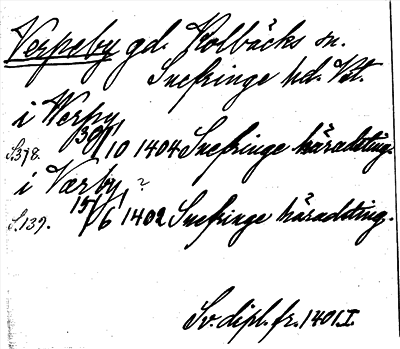 Verpeby gd. Kolbäcks sn.
Snefringe hd. Vst.
i Werpy,
S.378. 30/10 1404 Snefringe häradsting.
i Værby, ?
S.139. 15/6 1402 Snefringe häradsting.
Sv. dipl. fr. 1401.I.